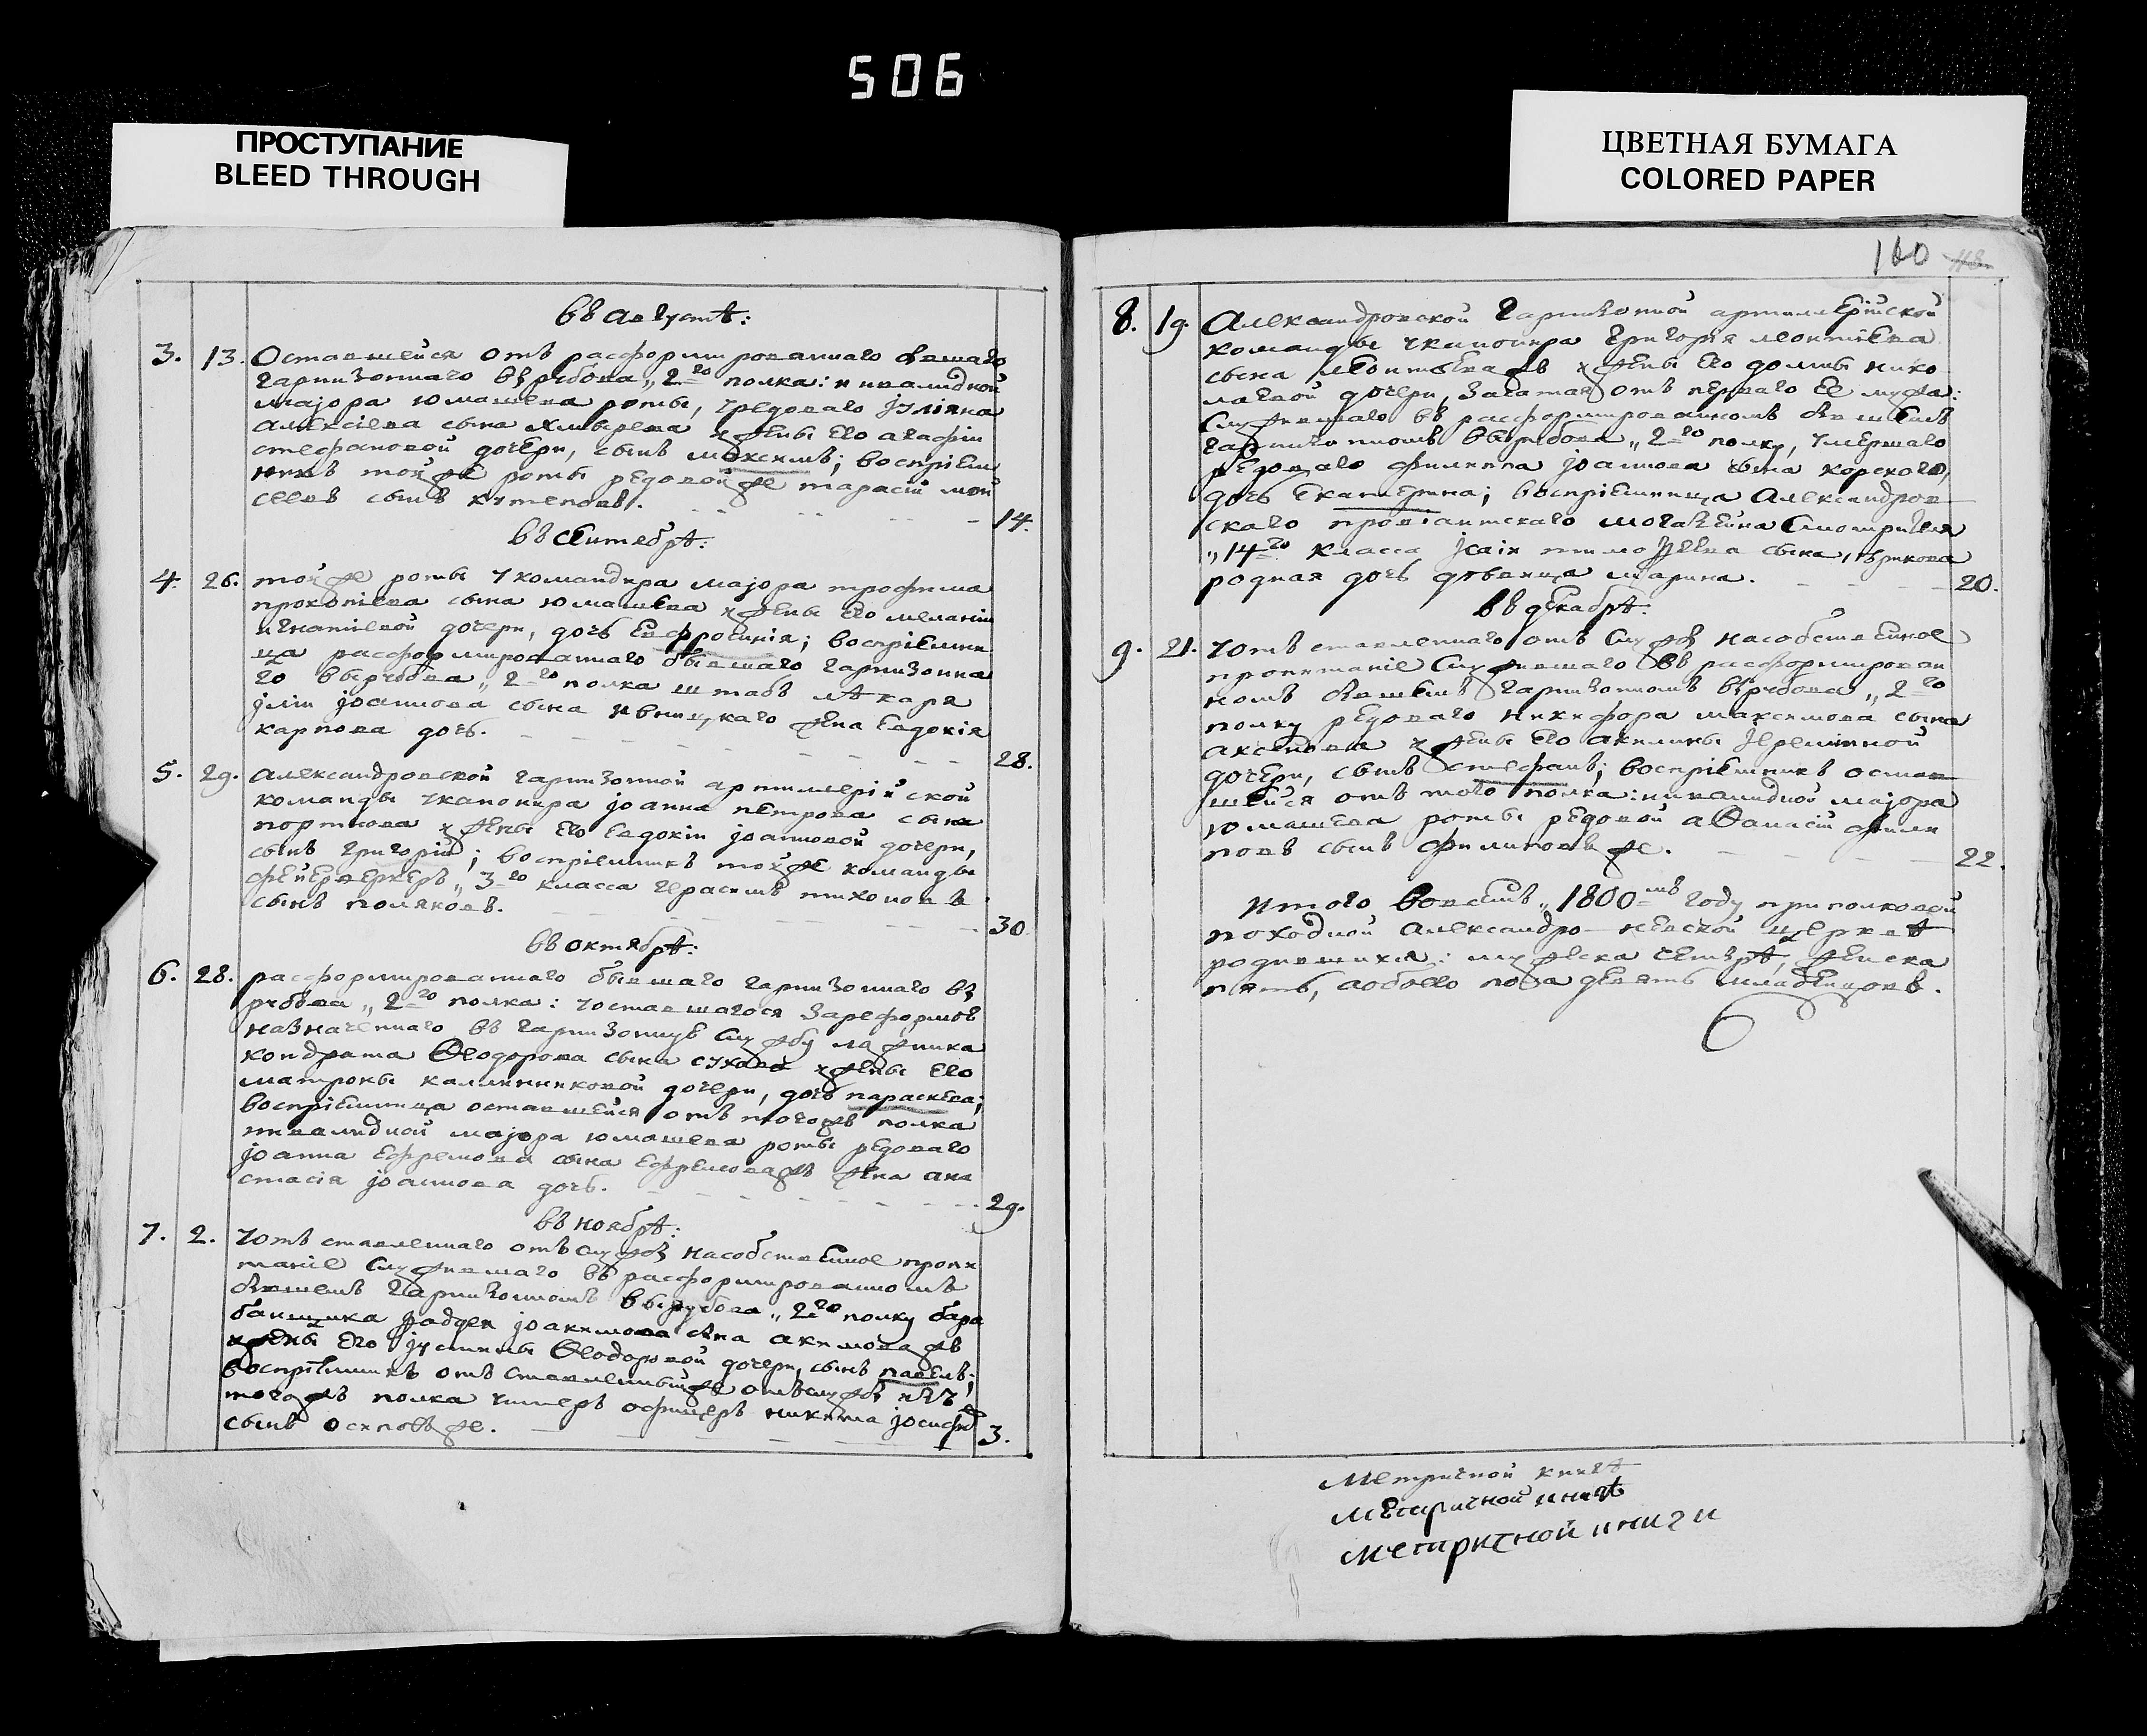 506
ПРОСТУПАНИЕ
BLEED THROUGH
ЦВЕТНАЯ БУМАГА
COLORED PAPER
160
въ августѣ:
3. 13. Оставшейся отъ расформированнаго бывшаго
гарнизоннаго вырубова „2го полка: инвалидной
маjора юмашева роты, уредоваго jуліяна
алексіева сына хмырева жены его агафіи
стефановой дочери, сынъ максимъ; воспріем
никъ той же роты редовой же тарасій мои
сеевъ сынъ 14.
въ сентебрѣ:
4. 26. той же роты укомандира маjора трофима
прокопіева сына юмашева жены его меланіи
игнатіевой дочери, дочь евфросинія; воспріемни
ца расформированнаго бывшаго гарнизонна
го вырубова „2го полка штабъ лѣкаря
jліи jоаннова сына жена евдокія
карпова дочь. 28.
5. 29. александровской гарнизонной артиллерійской
команды уканонира jоанна петрова сына
портнова жены его евдокіи jоанновой дочери,
сынъ григорій; воспріемникъ той же команды
фейерверкеръ „3го класса герасимъ тихоновъ
сынъ поляковъ. 30
въ октябрѣ:
6. 28. расформированнаго бывшаго гарнизоннаго вы
рубова „2го полка: уоставшагося зареформою
назначеннаго въ гарнизонную службу
кондрата Ѳеодорова сына сухова жены его
матроны калинниковой дочери, дочь параскева;
воспріемница оставшейся отъ тогожъ полка
инвалидной маjора юмашева роты редоваго
jоанна ефремова сына ефремоважъ жена ана
стасія jоаннова дочь. 29.
въ ноябрѣ:
7. 2. уотъ ставленнаго отъ службы насобственное пропи
таніе служившаго въ расформированномъ
бывшемъ гарнизонномъ вырубова „2го полку бара
банщика фадден jоакимова сына акимоважъ
жены его jустины Ѳеодоровой дочери, сынъ павелъ;
воспріемникъ отъ ставленный же отъ службы изъ
тогожъ полка унтеръ офицеръ никита jосифо
сынъ осиповъ же. 3.
8. 19. Александровской гарнизонной артиллерійской
команды уканонира григорія леонтіева
сына леонтьеважъ жены его домны нико
лаевой дочери, зачатая отъ перваго ее мужа:
служившаго въ расформированномъ бывшемъ
гарнизонномъ вырубова „2го полку, умершаго
редоваго филиппа jоаннова сына корского,
дочь екатерина; воспріемница александров
скаго провіантскаго могазеина смотрителя
„14го класса jсаіи тимоѳеева сына,
родная дочь девица марина. 20.
въ декабрѣ:
9. 21. уотъ ставленнаго отъ службы насобственное
пропитаніе служившаго въ расформирован
номъ бывшемъ гарнизонномъ вырубова „2го
полку редоваго никифора максимова сына
аксенова жены его акилины jереміиной
дочери, сынъ стефанъ; воспріемникъ остав
шейся отъ того полка: инвалидной маjора
юмашева роты редовой аѲанасій филип
повъ сынъ филиповъ же. 22.
итого вовсемъ „1800мъ году при полковой
походной александро-невской церквѣ
родившихся: мужеска четыре, женска
пять, аобоего пола девять младенцовъ.
Метричной книгѣ
метричной книгѣ
метричной книги